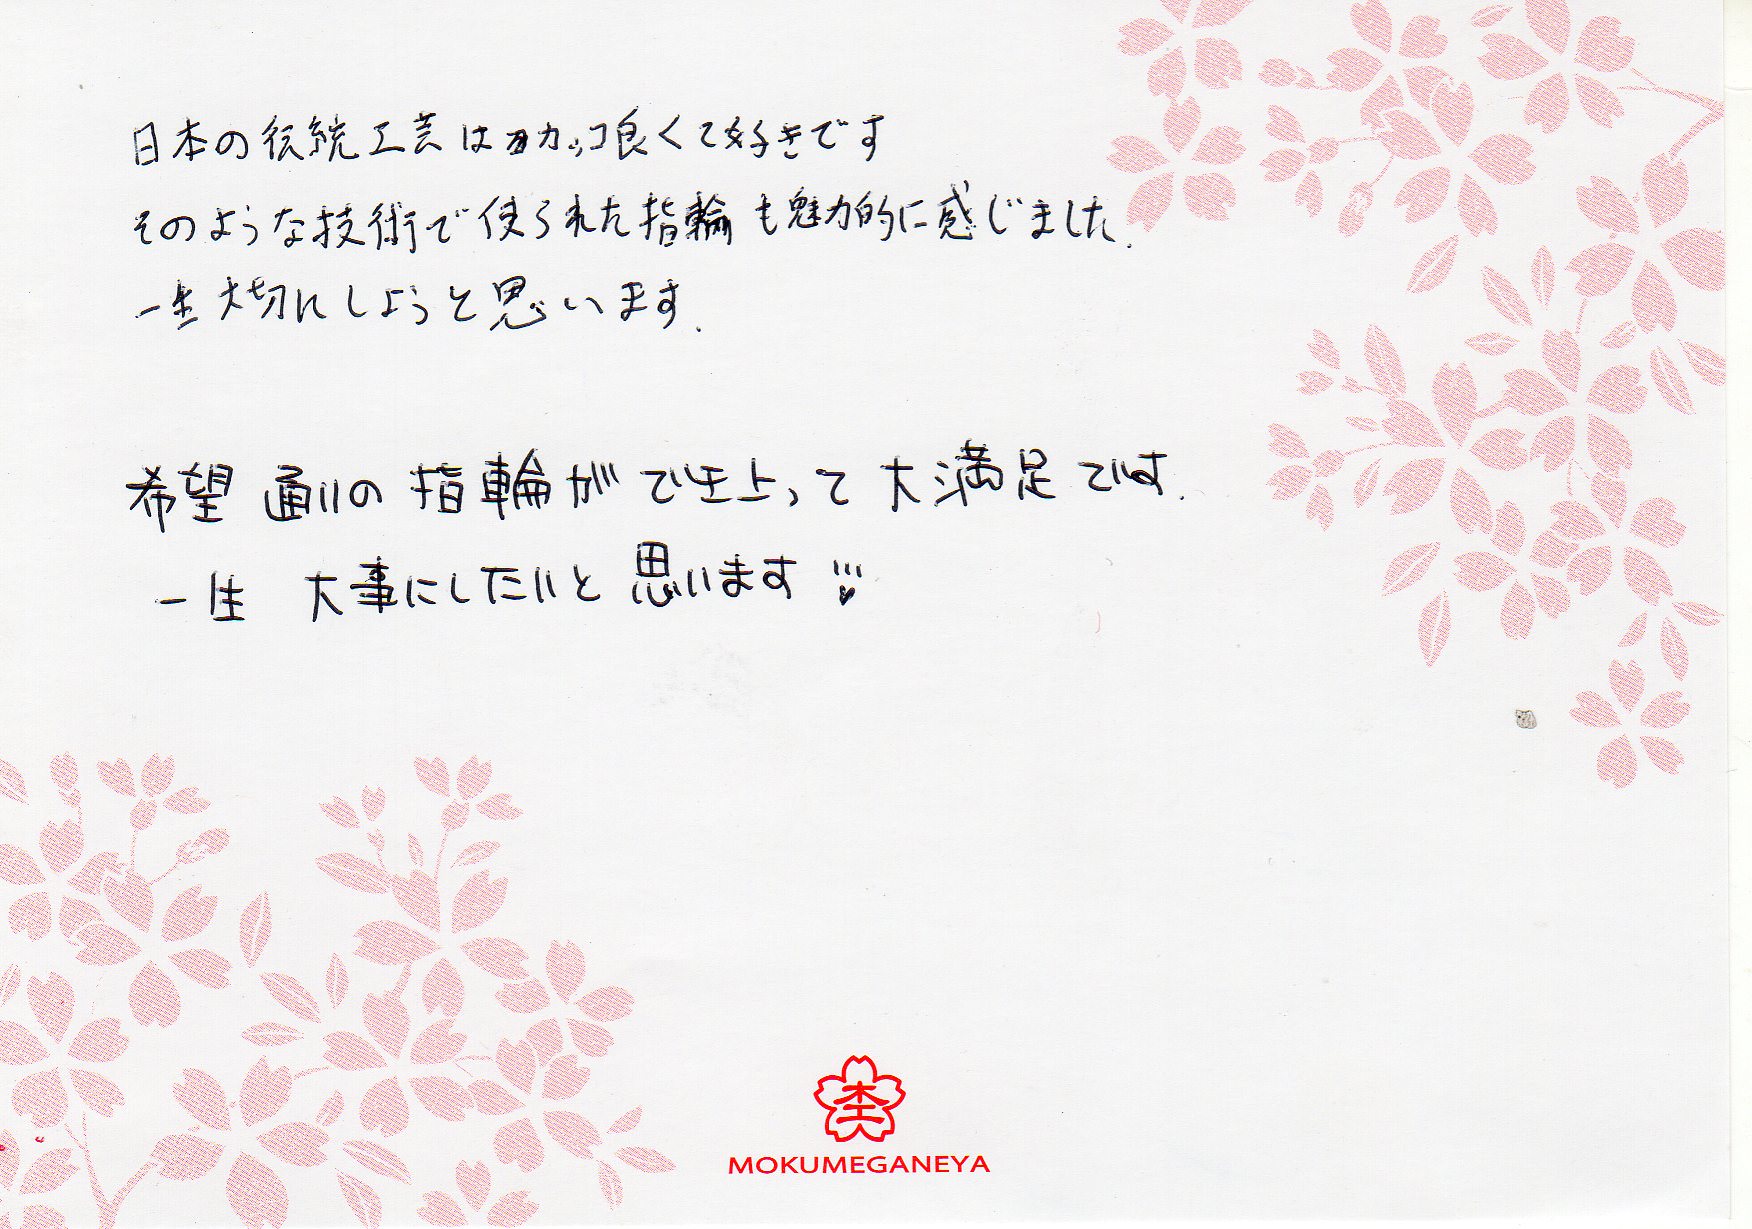 日本の伝統工芸はカッコ良くて好きです
そのような技術で使られた指輪も魅力的に感じました.
一生大切にしようと思います.
希望通りの指輪がで仕上って大満足です.
一生 大事にしたいと思います!!!
MOKUMEGANEYA